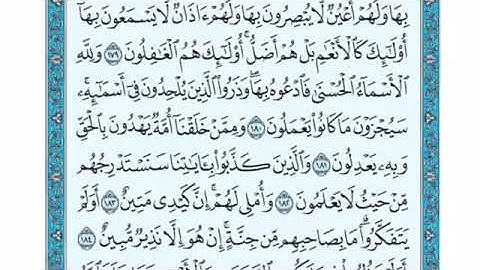 بِهَا وَلَهُمْ أَعْيُنٌ لَّا يُبْصِرُونَ بِهَا وَلَهُمْ ءَاذَانٌ لَّا يَسْمَعُونَ بِهَآ
أُوْلَٰٓئِكَ كَٱلْأَنْعَٰمِ بَلْ هُمْ أَضَلُّ ۚ أُوْلَٰٓئِكَ هُمُ ٱلْغَٰفِلُونَ ١٧٩ وَلِلَّهِ
ٱلْأَسْمَآءُ ٱلْحُسْنَىٰ فَٱدْعُوهُ بِهَا ۖ وَذَرُوا۟ ٱلَّذِينَ يُلْحِدُونَ فِىٓ أَسْمَٰٓئِهِۦ ۚ
سَيُجْزَوْنَ مَا كَانُوا۟ يَعْمَلُونَ ١٨٠ وَمِمَّنْ خَلَقْنَآ أُمَّةٌ يَهْدُونَ بِٱلْحَقِّ
وَبِهِۦ يَعْدِلُونَ ١٨١ وَٱلَّذِينَ كَذَّبُوا۟ بِـَٔايَٰتِنَا سَنَسْتَدْرِجُهُم
مِّنْ حَيْثُ لَا يَعْلَمُونَ ١٨٢ وَأُمْلِى لَهُمْ ۚ إِنَّ كَيْدِى مَتِينٌ ١٨٣ أَوَلَمْ
يَتَفَكَّرُوا۟ ۗ مَا بِصَاحِبِهِم مِّن جِنَّةٍ ۚ إِنْ هُوَ إِلَّا نَذِيرٌ مُّبِينٌ ١٨٤